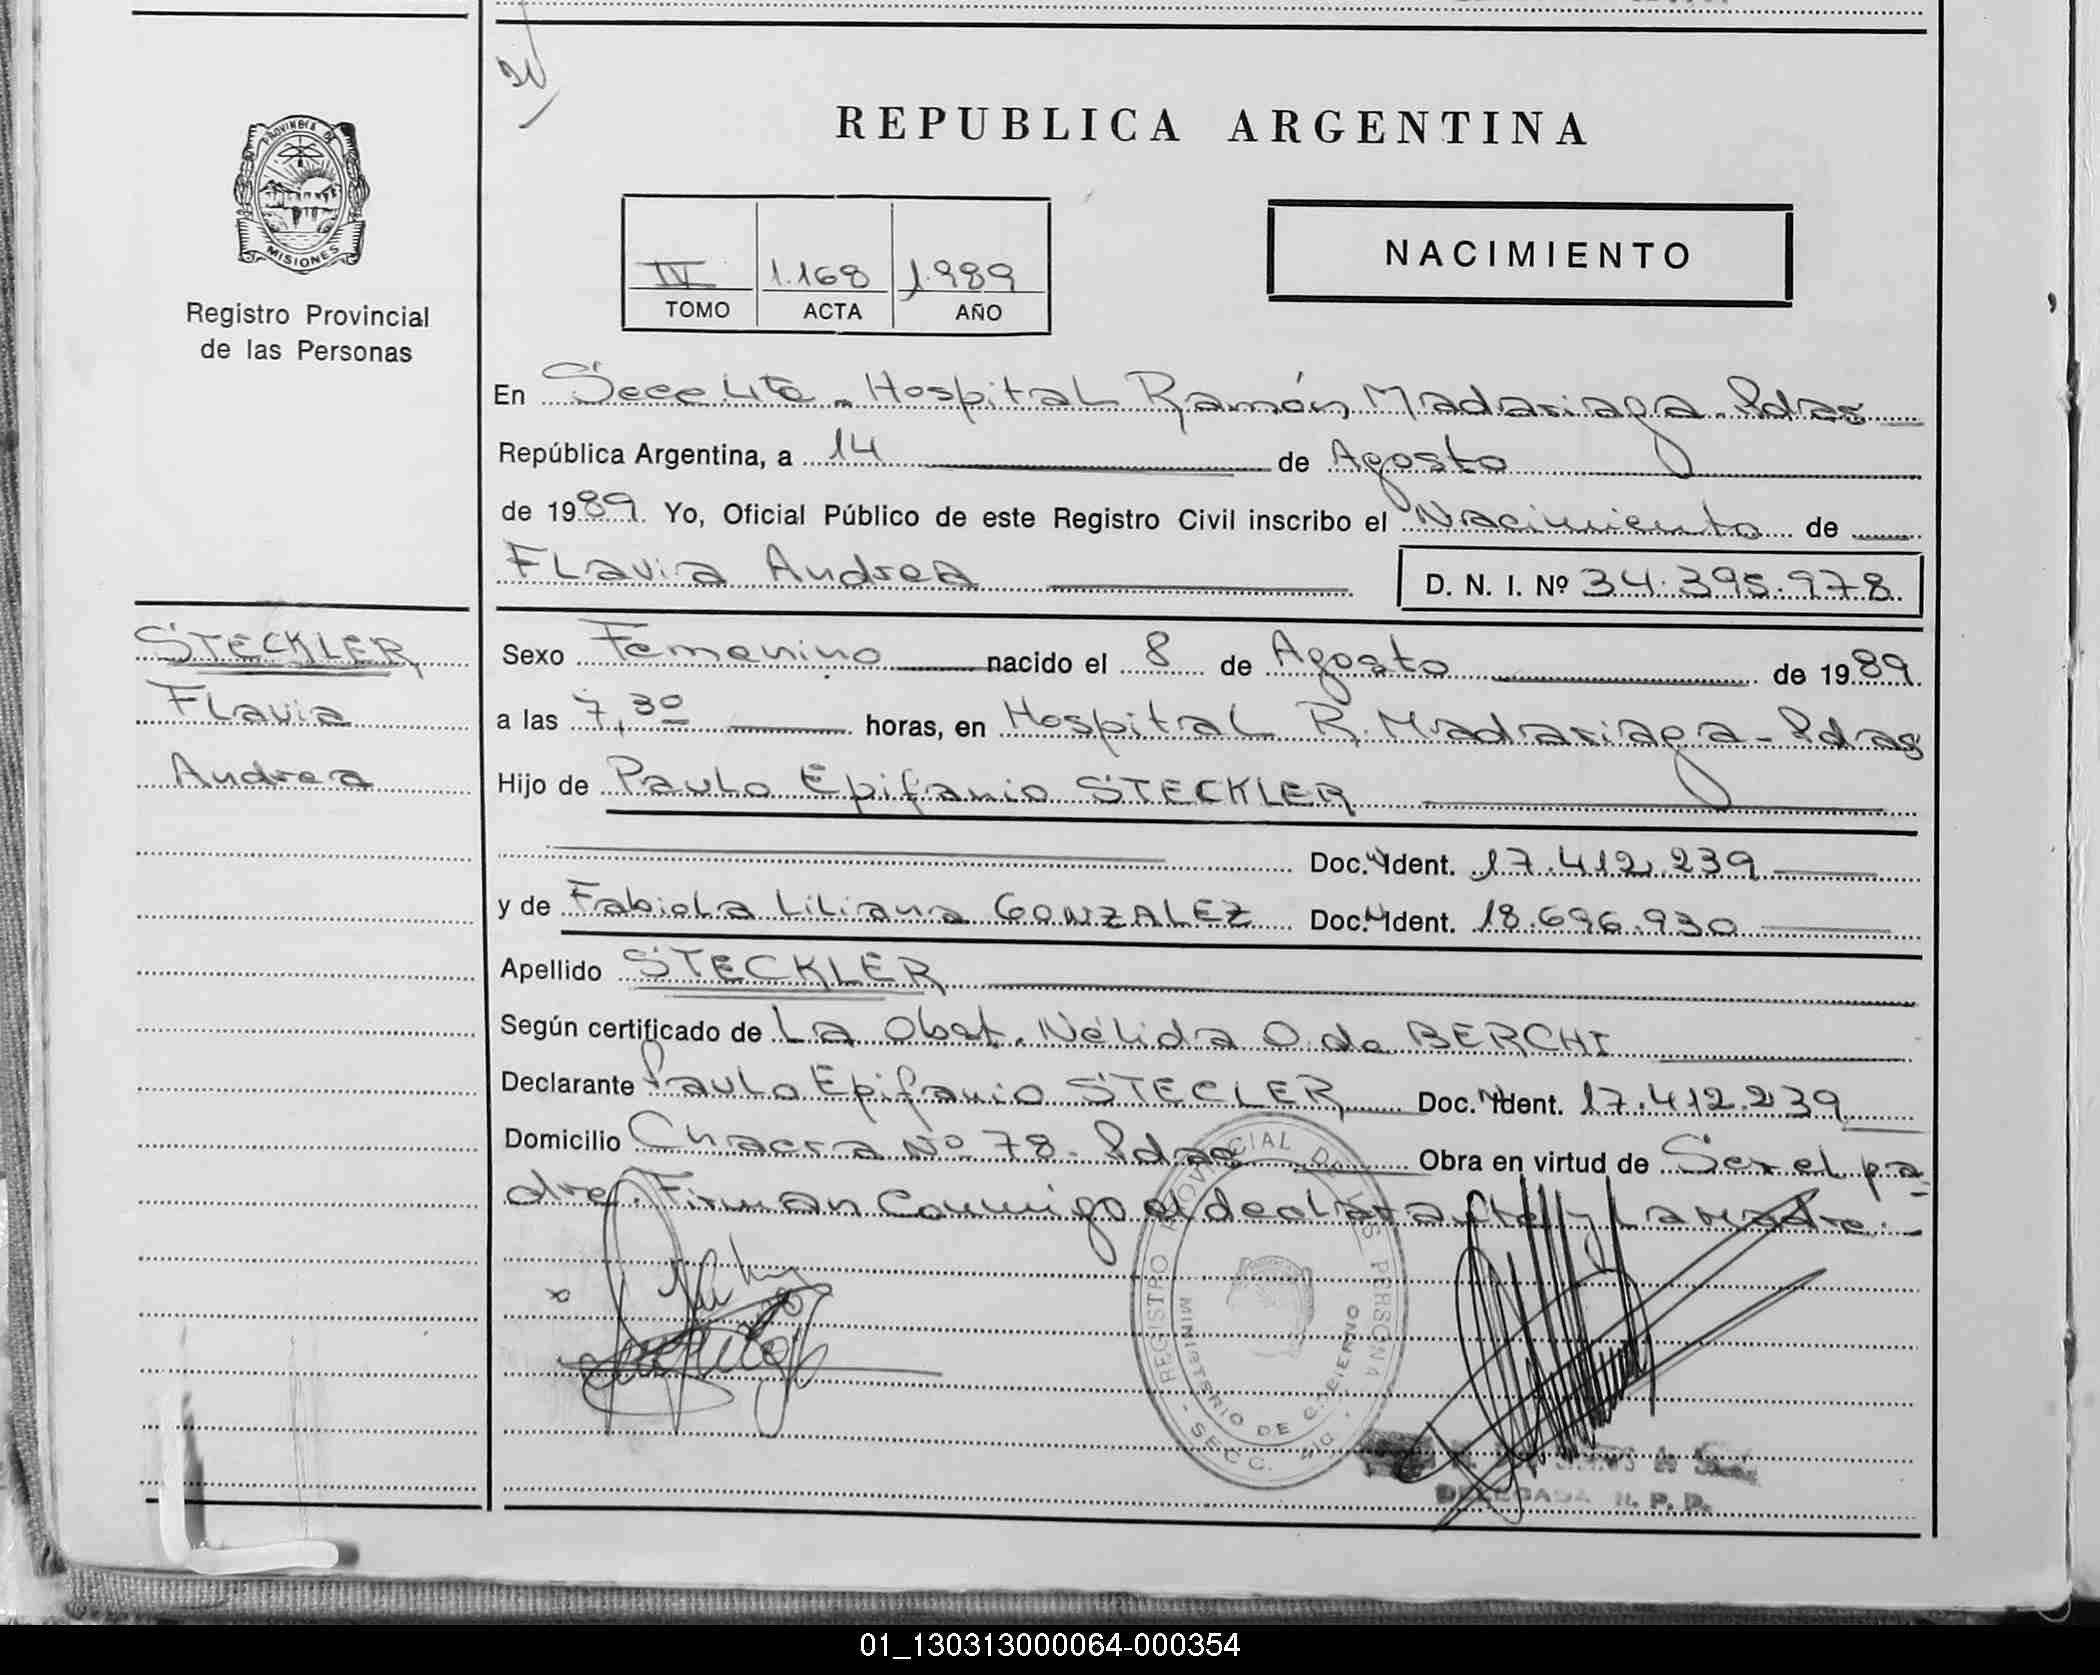 REPUBLICA ARGENTINA
PROVINCIA DE
MISIONES
Registro Provincial
de las Personas
IV 1.168 1.989
TOMO ACTA AÑO
NACIMIENTO
En Secc 4ta - Hospital Ramón Madariaga - Pdas
República Argentina, a 14 de Agosto
de 1989. Yo, Oficial Público de este Registro Civil inscribo el Nacimiento de
Flavia Andrea D. N. I. Nº 34.395.978.
STECKLER
Flavia
Andrea
Sexo Femenino nacido el 8 de Agosto de 1989.
a las 7,30 horas, en Hospital R. Madariaga - Pdas
Hijo de Paulo Epifanio STECKLER
Doc. Ident. 17.412.239
y de Fabiola Liliana GONZALEZ Doc. Ident. 18.696.930
Apellido STECKLER
Según certificado de La Obst. Nélida O. de BERCHI
Declarante Paulo Epifanio STECLER Doc. Ident. 17.412.239
Domicilio Chacra Nº 78 - Pdas Obra en virtud de Ser el pa-
dre. Firman Conmigo el declarante y La Madre. -
REGISTRO PROVINCIAL DE LAS PERSONAS
MINISTERIO DE GOBIERNO
SECC.
DELEGADA R. P. P.
01_130313000064-000354